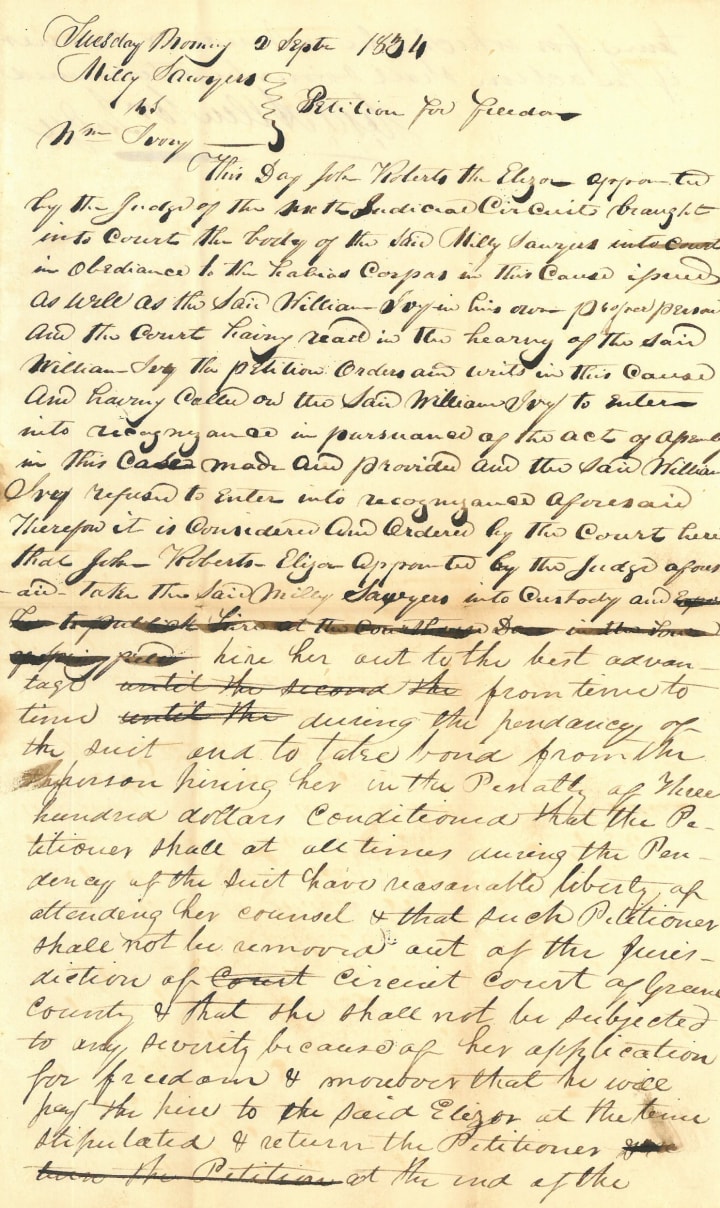 Tuesday Morning 2 Septr 1834
Milly Sawyers
vs
Petition for freedom
Wm Ivory
This Day John Roberts the Elizor appointed
by the Judge of the sixth Judicial Circuit braught
into Court the body of the Said Milly Sawyers into Court
in Obediance to the habias Corpas in this Cause issued
as well as the Said William Ivy in his own proper person
and the Court having read in the hearing of the Said
William Ivy the petition Orders and writs in this Cause
And having Called on the Said William Ivy to Enter
into recognizance in pursuance of the act of
in this Case made And provided And the Said William
Ivy refused to Enter into recognizance aforesaid
Therefore it is Considered And Ordered by the Court here
that John Roberts Elizor Appointed by the Judge afores
aid take the Said Milly Sawyers into Custody and
to publick hire at the Courthouse Door in the Town
hire her out to the best advan-
tage until the second the from time to
time until the during the pendancy of
the suit and to take bond from the
person hiring her in the Penalty of Three
hundred dollars Conditioned that the Pe-
titioner shall at all times during the Pen-
dency of the suit have reasonable liberty of
attending her counsel & that such Petitioner
shall not be removed out of the Juris-
diction of Court circuit court of Greene
county & that she shall not be subjected
to any severity because of her application
for freedom & moreover that he will
pay the hire to the said Elizor at the time
stipulated & return the Petitioner
turn the Petition at the end of the